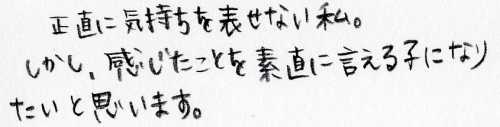 正直に気持ちを表せない私。
しかし、感じたことを素直に言える子になり
たいと思います。